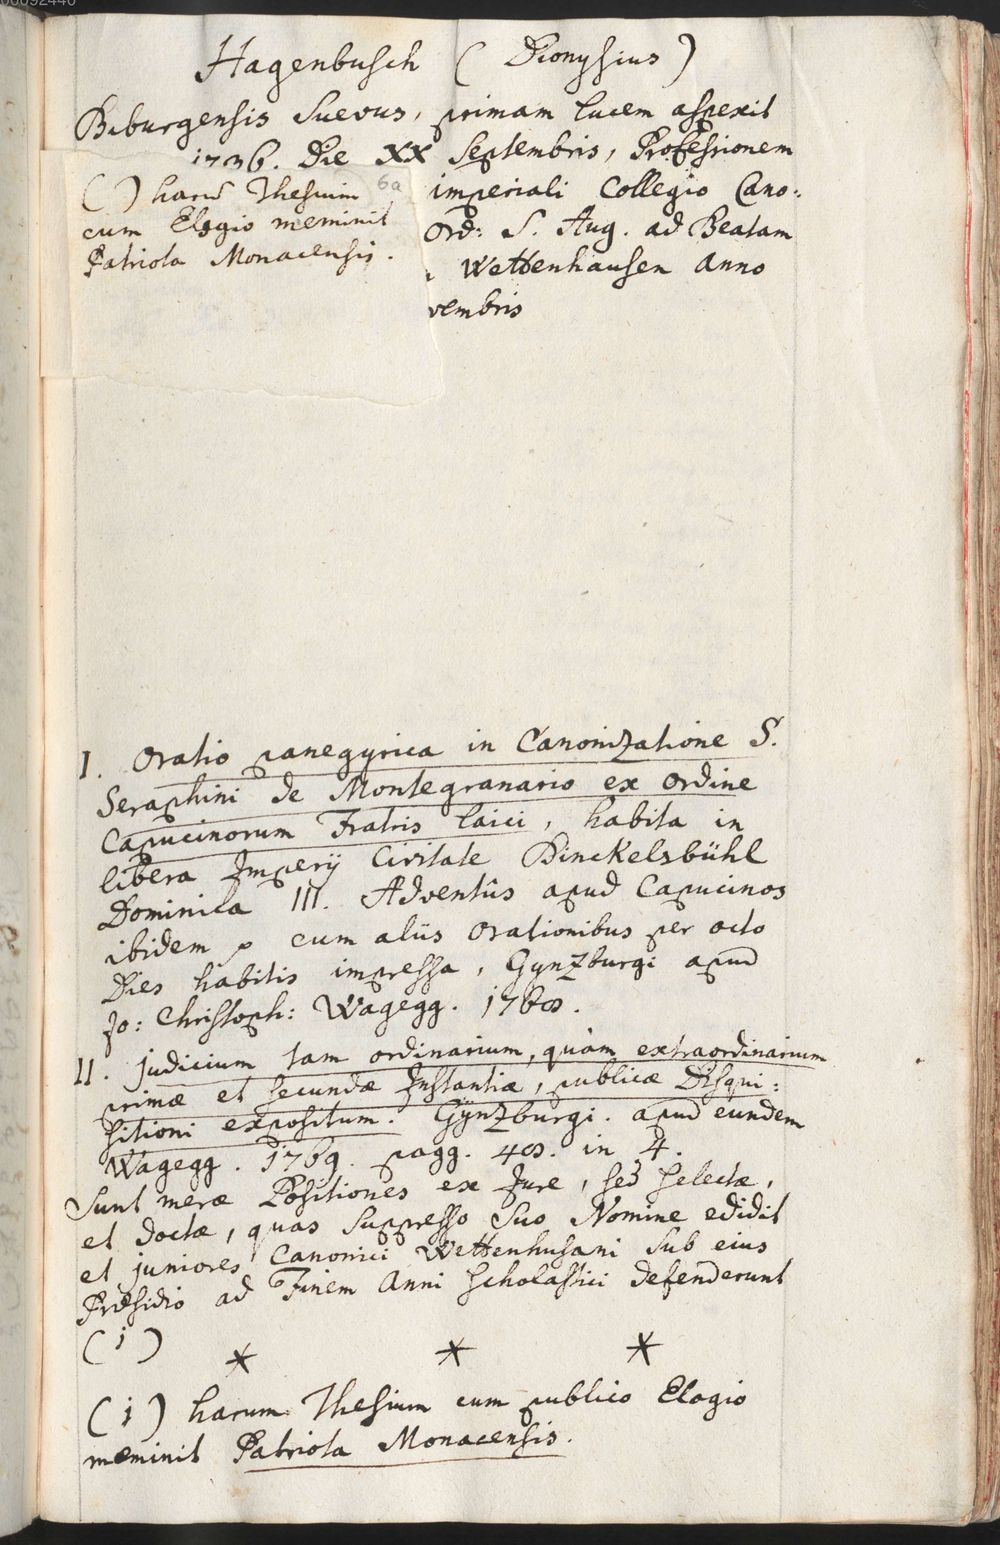 Hagenbusch ( Dionysius )
Biburgensis Suevus, primam lucem aspexit
1736. Die XX Septembris, Professionem
imperiali Collegio Cano:
Ord: S. Aug. ad Beatam
Wettenhausen Anno
vembris
( ) harũ Thesium 6a
cum Elogio meminit
Patriota Monacensis.
I. Oratio panegyrica in Canonizatione S.
Seraphini de Montegranario ex ordine
Capucinorum Fratris laici, habita in
libera Imperij Civitate Dinckelsbühl
Dominica III. Adventûs apud Capucinos
ibidem cum aliis orationibus per octo
Dies habitis impressa, Gynzburgi apud
Jo: Christoph: Wagegg. 1768.
II. Judicium tam ordinarium, quàm extraordinarium
primæ et secundæ Instantiæ, publicæ Disqui:
sitioni expositum. Gÿnzburgi. apud eundem
Wagegg. 1769. pagg. 48. in 4.
Sunt meræ Positiones ex Jure, sed selectæ,
et doctæ, quas suppresso suo Nomine edidit
et juniores Canonici Wettenhusani sub eius
Præsidio ad Finem Anni scholastici defenderunt
(i)
* * *
(i) harum Thesium cum publico Elogio
meminit Patriota Monacensis.